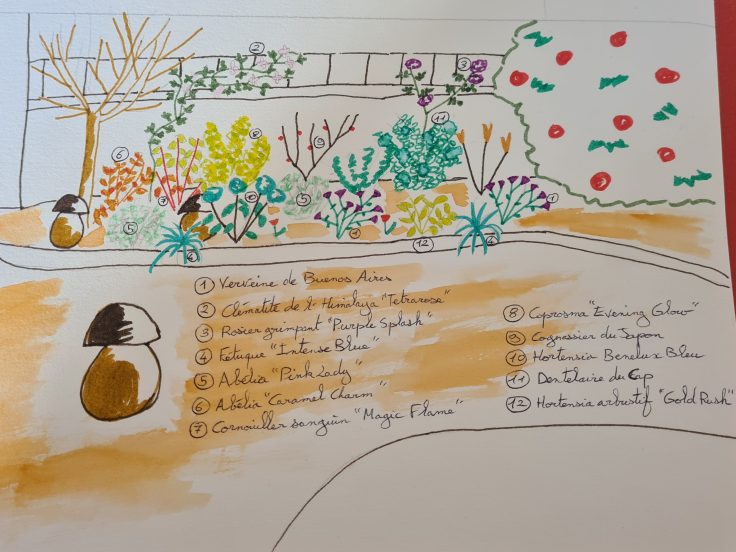 2
3
8
11
9
6
7
5
10
5
1
1
4
12
4
1 Verveine de Buenos Aires
2 Clématite de l'Himalaya "Tetrarose"
3 Rosier grimpant "Purple Splash"
4 Fétuque "Intense Blue"
5 Abélia "Pink Lady"
6 Abélia "Caramel Charm"
7 Cornouiller sanguin "Magic Flame"
8 Coprosma "Evening Glow"
9 Cognassier du Japon
10 Hortensia Benelux Bleu
11 Dentelaire du Cap
12 Hortensia arbustif "Gold Rush"